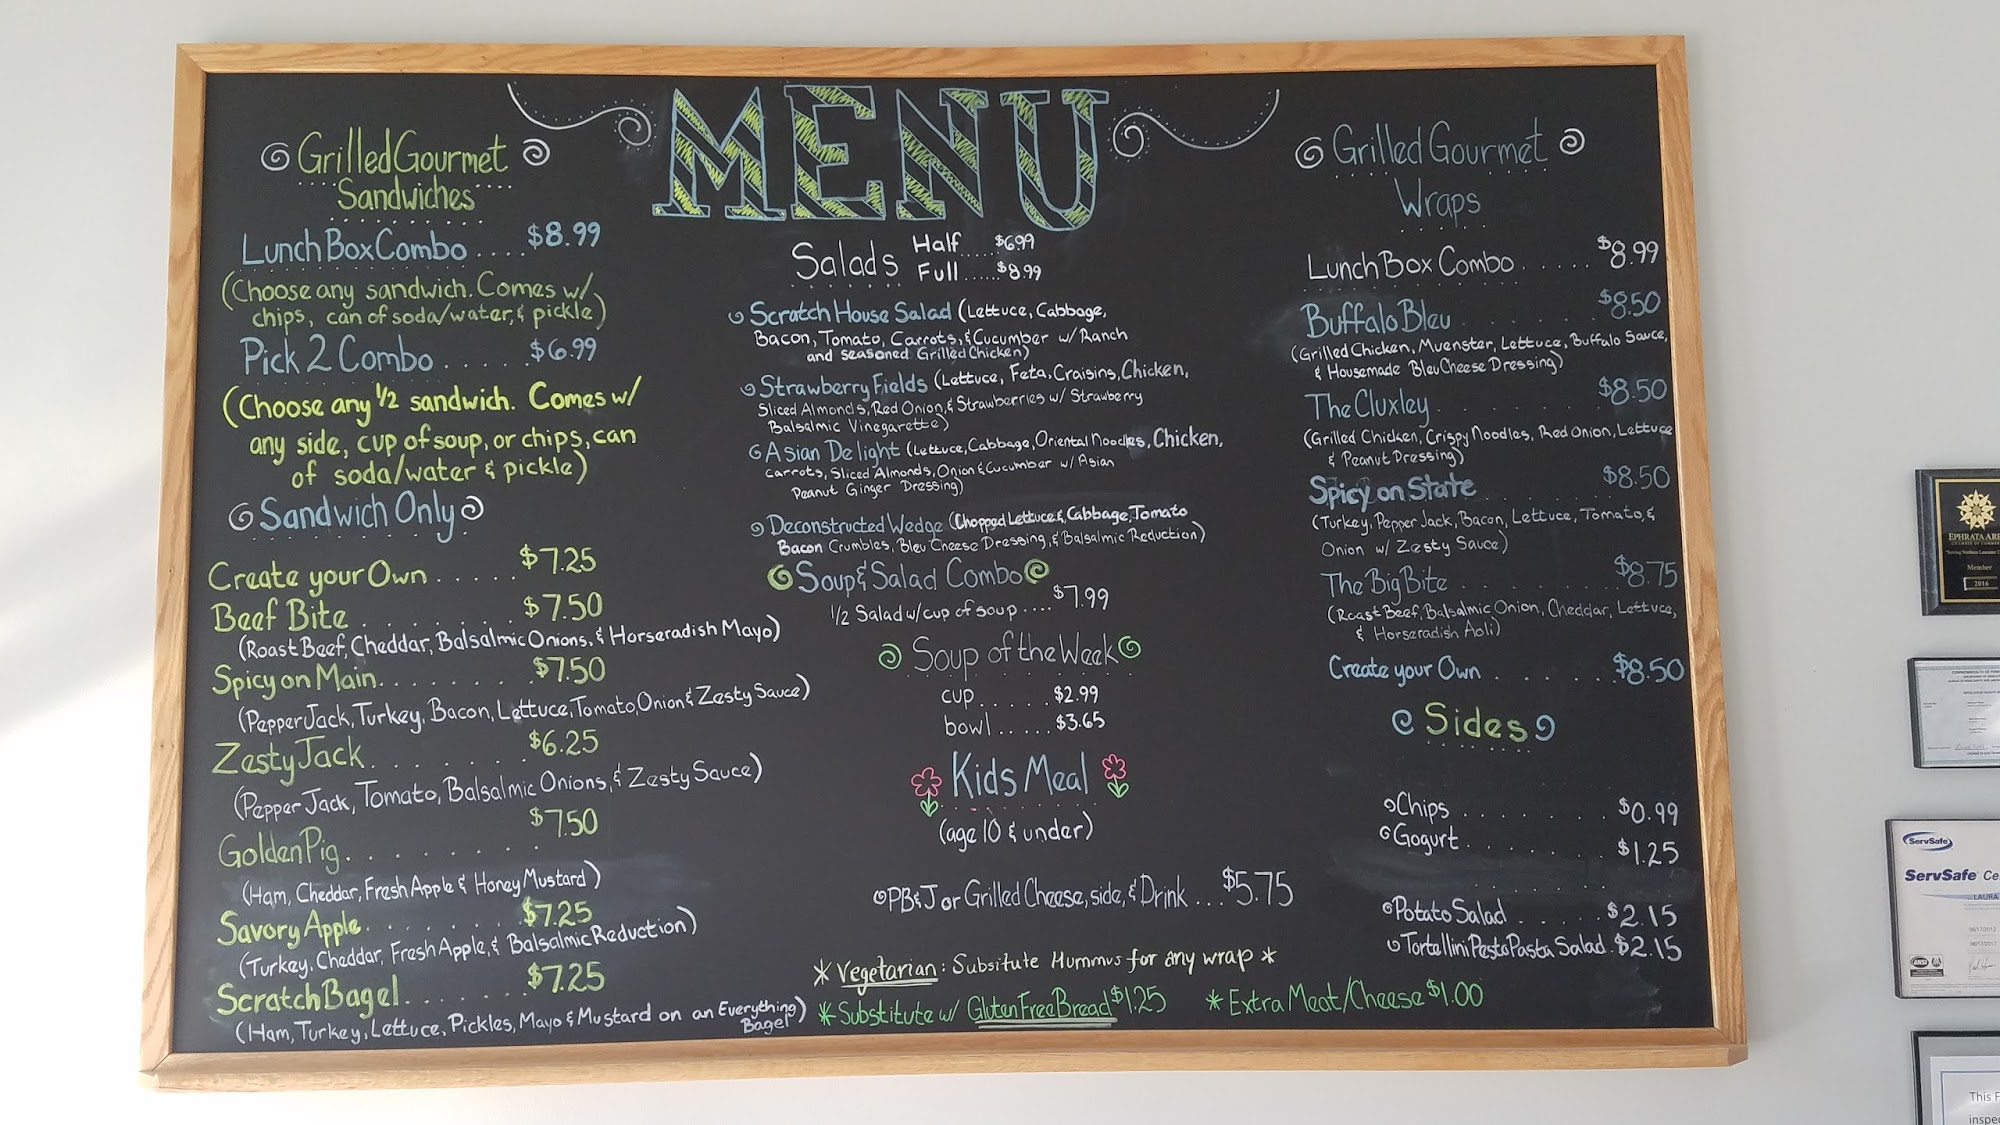 MENU
Grilled Gourmet
Sandwiches
Lunch Box Combo .... $8.99
(Choose any sandwich. Comes w/
chips, can of soda/water, & pickle)
Pick 2 Combo ..... $6.99
(Choose any 1/2 sandwich. Comes w/
any side, cup of soup, or chips, can
of soda/water & pickle)
Sandwich Only
Create your Own ..... $7.25
Beef Bite ........ $7.50
(Roast Beef, Cheddar, Balsalmic Onions, & Horseradish Mayo)
Spicy on Main ....... $7.50
(Pepper Jack, Turkey, Bacon, Lettuce, Tomato, Onion & Zesty Sauce)
Zesty Jack ........ $6.25
(Pepper Jack, Tomato, Balsalmic Onions, & Zesty Sauce)
Golden Pig ......... $7.50
(Ham, Cheddar, Fresh Apple & Honey Mustard)
Savory Apple ........ $7.25
(Turkey, Cheddar, Fresh Apple, & Balsalmic Reduction)
Scratch Bagel ....... $7.25
(Ham, Turkey, Lettuce, Pickles, Mayo & Mustard on an Everything
Bagel)
Salads
Half .... $6.99
Full ..... $8.99
Scratch House Salad (Lettuce, Cabbage,
Bacon, Tomato, Carrots, & Cucumber w/ Ranch
and seasoned Grilled Chicken)
Strawberry Fields (Lettuce, Feta, Craisins, Chicken,
Sliced Almonds, Red Onion, & Strawberries w/ Strawberry
Balsalmic Vinegarette)
Asian Delight (Lettuce, Cabbage, Oriental Noodles, Chicken,
Carrots, Sliced Almonds, Onion & Cucumber w/ Asian
Peanut Ginger Dressing)
Deconstructed Wedge (Chopped Lettuce & Cabbage, Tomato
Bacon Crumbles, Bleu Cheese Dressing, & Balsalmic Reduction)
Soup & Salad Combo
1/2 Salad w/ cup of soup .... $7.99
Soup of the Week
cup ...... $2.99
bowl ...... $3.65
Kids Meal
(age 10 & under)
PB&J or Grilled Cheese, side, & Drink ... $5.75
* Vegetarian: Subsitute Hummus for any wrap *
* Substitute w/ Gluten Free Bread $1.25 * Extra Meat/Cheese $1.00
Grilled Gourmet
Wraps
Lunch Box Combo ...... $8.99
Buffalo Bleu ........ $8.50
(Grilled Chicken, Muenster, Lettuce, Buffalo Sauce,
& Housemade Bleu Cheese Dressing)
The Cluxley ........ $8.50
(Grilled Chicken, Crispy Noodles, Red Onion, Lettuce
& Peanut Dressing)
Spicy on State ...... $8.50
(Turkey, Pepper Jack, Bacon, Lettuce, Tomato, &
Onion w/ Zesty Sauce)
The Big Bite ........ $8.75
(Roast Beef, Balsalmic Onion, Cheddar, Lettuce,
& Horseradish Aoli)
Create your Own ....... $8.50
Sides
Chips ........ $0.99
Gogurt ........ $1.25
Potato Salad ...... $2.15
Tortellini Pesto Pasta Salad. $2.15
EPHRATA ARE
Member
2016
ServSafe
ServSafe Ce
LAURA
This F
inspec